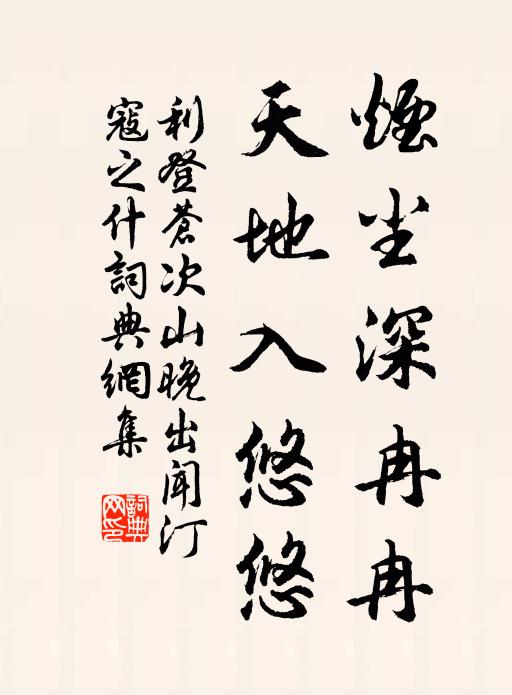 煙尘深冉冉
天地入悠悠
利登蒼次山晚出闻汀
寇之什詞典網集
詞典
网印